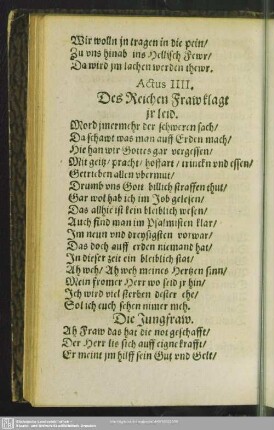 Wir wolln jn tragen in die pein/
Zu vns hinab ins Hellisch Fewr/
Da wird jm lachen werden thewr.
Actus IIII.
Des Reichen Fraw klagt
jr leid.
Mord jmermehr der schweren sach/
Da schawt was man auff Erden mach/
Hie han wir Gottes gar vergessen/
Mit geitz/ pracht/ hoffart/ trincken vnd essen/
Getrieben allen vbermut/
Drumb vns Gott billich straffen thut/
Gar wol hab ich im Job gelesen/
Das allhie ist kein bleiblich wesen/
Auch find man im Psalmisten klar/
Im neun vnd dreyssigsten vorwar/
Das doch auff erden niemand hat/
In dieser zeit ein bleiblich stat/
Ah weh/ Ah weh meines Hertzen sinn/
Mein fromer Herr wo seid jr hin/
Ich wird viel sterben dester ehe/
Sol ich euch sehen nimer meh.
Die Jungfraw.
Ah Fraw das hat die not geschafft/
Der Herr lis sich auff eigne krafft/
Er meint jm hilff sein Gut vnd Gelt/